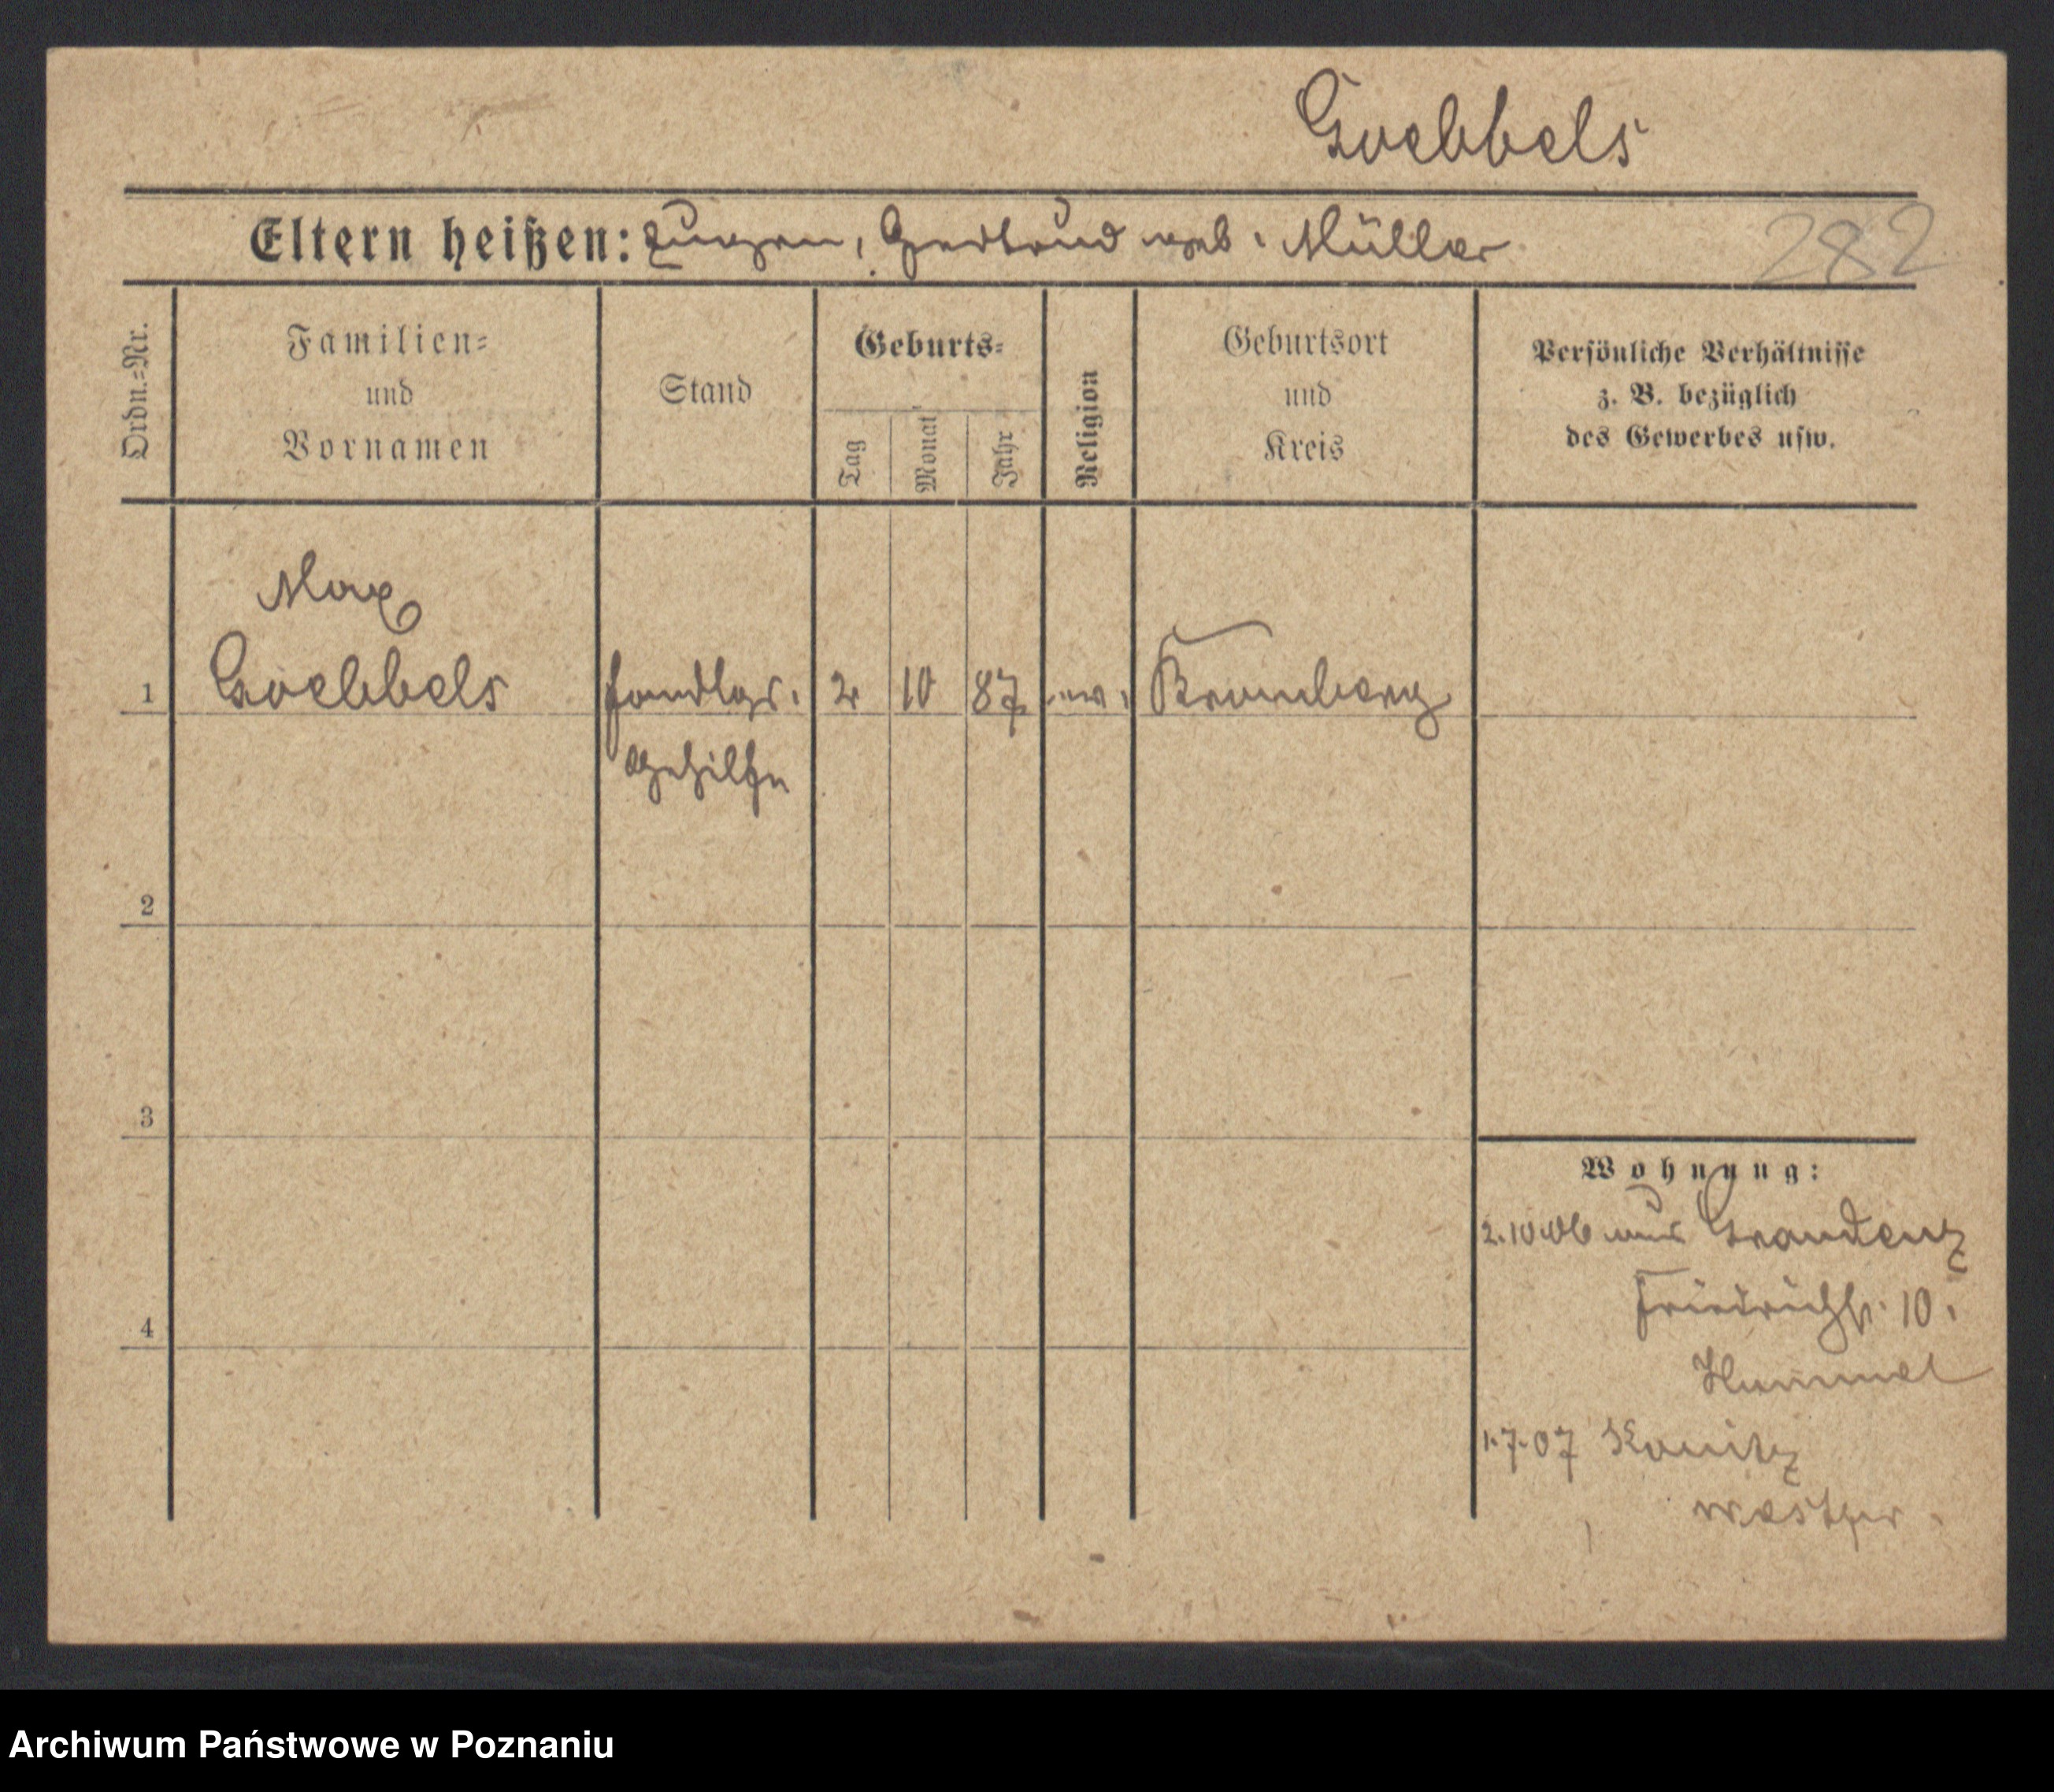 Goebbels
Eltern heißen: Eugen, Gertrud geb. Müller
282
Ordn.=Nr.
Familien=
und
Vornamen
Stand
Geburts=
Tag
Monat
Jahr
Religion
Geburtsort
und
Kreis
Persönliche Verhältnisse
z. B. bezüglich
des Gewerbes usw.
Max
1 Goebbels Handlgs. 2 10 87 ev. Bromberg
Gehilfe
2
3
4
Wohnung:
2.10.06 aus Graudenz
Friedrichstr. 10.
Hummel
1.7.07 Konitz
Westpr.
Archiwum Państwowe w Poznaniu